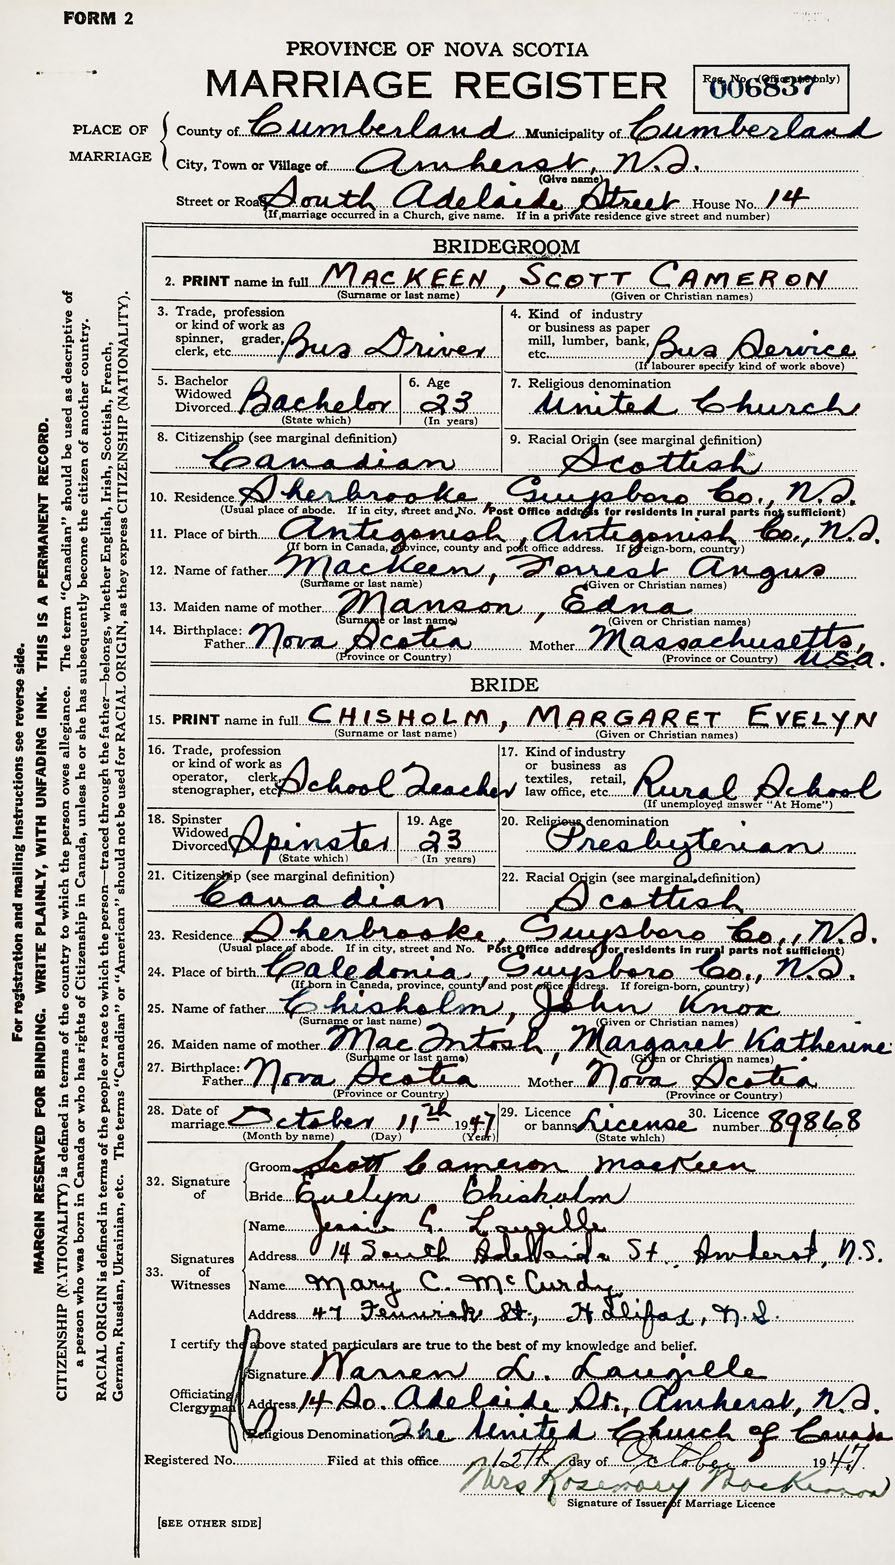 FORM 2
PROVINCE OF NOVA SCOTIA
MARRIAGE REGISTER
Reg. No. (Office use only)
006837
PLACE OF MARRIAGE
County of Cumberland Municipality of Cumberland
City, Town or Village of Amherst, N.S.
(Give name)
Street or Road South Adelaide Street House No. 14
(If marriage occurred in a Church, give name. If in a private residence give street and number)
BRIDEGROOM
2. PRINT name in full MACKEEN, SCOTT CAMERON
(Surname or last name) (Given or Christian names)
3. Trade, profession or kind of work as spinner, grader, clerk, etc. Bus Driver
4. Kind of industry or business as paper mill, lumber, bank, etc. Bus Service
(If labourer specify kind of work above)
5. Bachelor Widowed Divorced Bachelor
(State which)
6. Age 23
(In years)
7. Religious denomination United Church
8. Citizenship (see marginal definition)
Canadian
9. Racial Origin (see marginal definition)
Scottish
10. Residence Sherbrooke, Guysboro Co., N.S.
(Usual place of abode. If in city, street and No. Post Office address for residents in rural parts not sufficient)
11. Place of birth Antigonish, Antigonish Co., N.S.
(If born in Canada, province, county and post office address. If foreign-born, country)
12. Name of father MacKeen, Forrest Angus
(Surname or last name) (Given or Christian names)
13. Maiden name of mother Manson, Edna
(Surname or last name) (Given or Christian names)
14. Birthplace: Father Nova Scotia Mother Massachusetts, USA.
(Province or Country) (Province or Country)
BRIDE
15. PRINT name in full CHISHOLM, MARGARET EVELYN
(Surname or last name) (Given or Christian names)
16. Trade, profession or kind of work as operator, clerk, stenographer, etc. School Teacher
17. Kind of industry or business as textiles, retail, law office, etc. Rural School
(If unemployed answer "At Home")
18. Spinster Widowed Divorced Spinster
(State which)
19. Age 23
(In years)
20. Religious denomination
Presbyterian
21. Citizenship (see marginal definition)
Canadian
22. Racial Origin (see marginal definition)
Scottish
23. Residence Sherbrooke, Guysboro Co., N.S.
(Usual place of abode. If in city, street and No. Post Office address for residents in rural parts not sufficient)
24. Place of birth Caledonia, Guysboro Co., N.S.
(If born in Canada, province, county and post office address. If foreign-born, country)
25. Name of father Chisholm, John Knox
(Surname or last name) (Given or Christian names)
26. Maiden name of mother MacIntosh, Margaret Katherine
(Surname or last name) (Given or Christian names)
27. Birthplace: Father Nova Scotia Mother Nova Scotia
(Province or Country) (Province or Country)
28. Date of marriage October 11th 1947
(Month by name) (Day) (Year)
29. Licence or banns License
(State which)
30. Licence number 89868
32. Signature of
Groom Scott Cameron MacKeen
Bride Evelyn Chisholm
33. Signatures of Witnesses
Name Jessie E. Laugille
Address 14 South Adelaide St. Amherst, N.S.
Name Mary C. McCurdy
Address 47 Fenwick St., Halifax, N.S.
I certify the above stated particulars are true to the best of my knowledge and belief.
Officiating Clergyman
Signature Warren L. Laugille
Address 14 So. Adelaide St., Amherst, N.S.
Religious Denomination The United Church of Canada
Registered No. Filed at this office 12th day of October 1947.
Mrs Rosemary MacKinnon
Signature of Issuer of Marriage Licence
[SEE OTHER SIDE]
For registration and mailing instructions see reverse side.
MARGIN RESERVED FOR BINDING. WRITE PLAINLY, WITH UNFADING INK. THIS IS A PERMANENT RECORD.
CITIZENSHIP (NATIONALITY) is defined in terms of the country to which the person owes allegiance. The term "Canadian" should be used as descriptive of
a person who was born in Canada or who has rights of Citizenship in Canada, unless he or she has subsequently become the citizen of another country.
RACIAL ORIGIN is defined in terms of the people or race to which the person—traced through the father—belongs, whether English, Irish, Scottish, French,
German, Russian, Ukrainian, etc. The terms "Canadian" or "American" should not be used for RACIAL ORIGIN, as they express CITIZENSHIP (NATIONALITY).